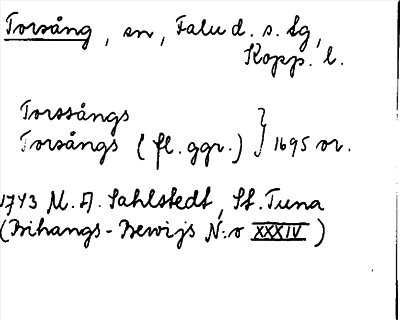 Torsång, sn, Falu d. s. lg,
Kopp. l.
Torssångs
Torsångs (fl. ggr.) } 1695 or.
1743 M. A. Sahlstedt, St. Tuna
(Bihangs-Bewijs N:o XXXIV)